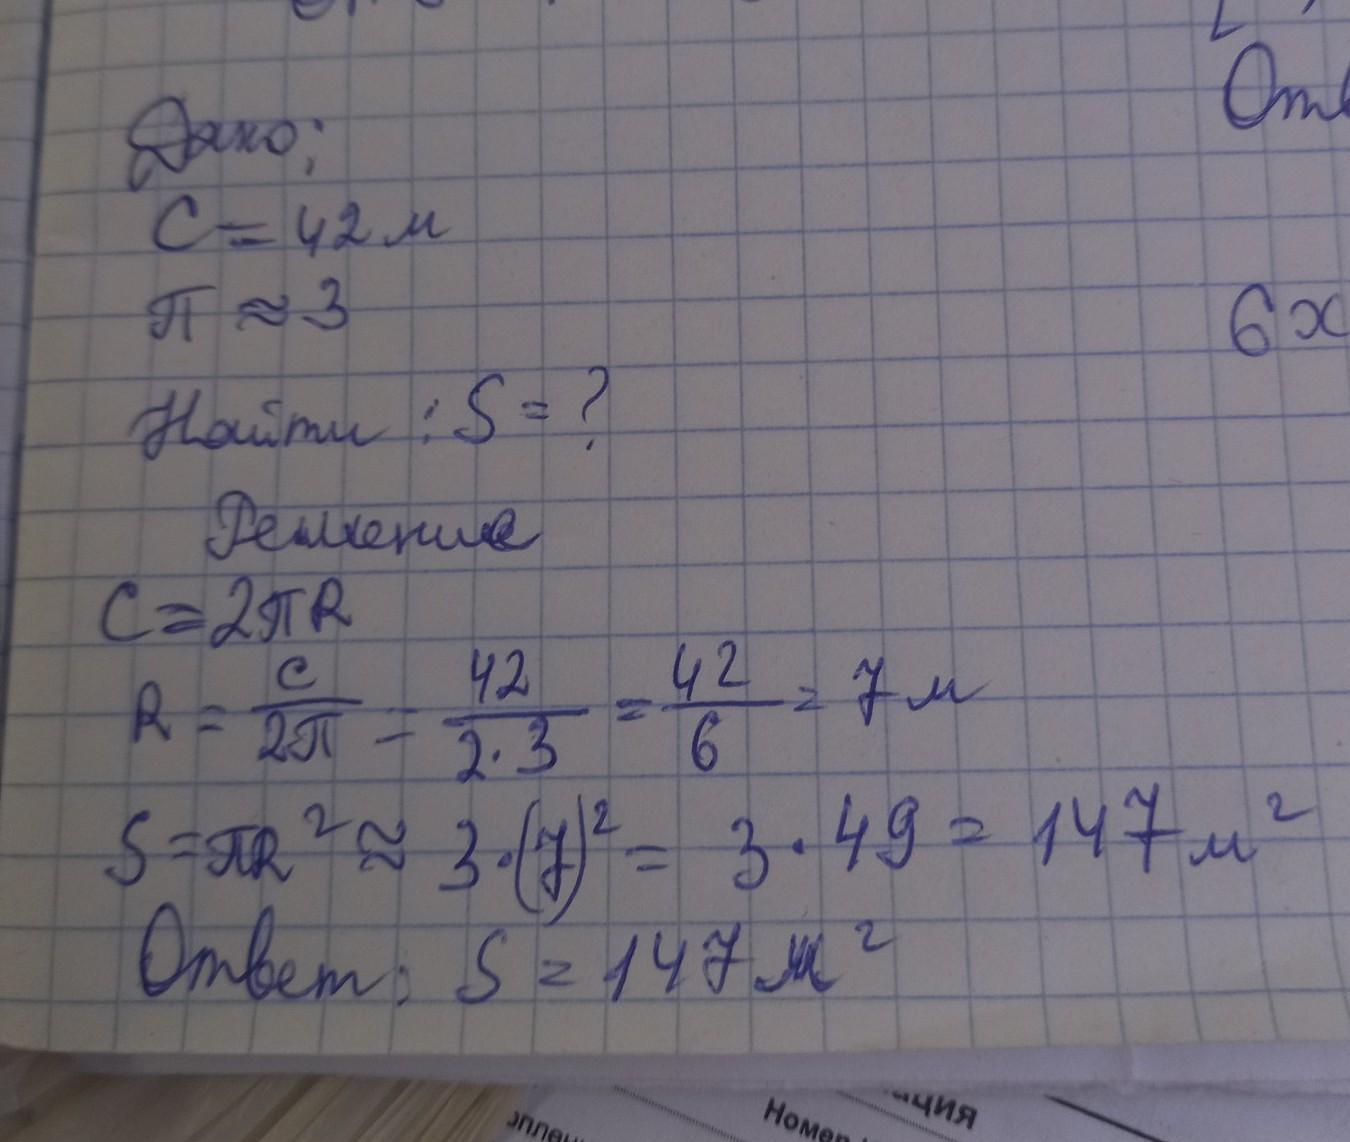 Дано:
C = 42 м
π ≈ 3
Найти : S = ?
Решение
C = 2πR
R = C/2π = 42/2·3 = 42/6 = 7 м
S = πR² ≈ 3·(7)² = 3·49 = 147 м²
Ответ: S = 147 м²
6x
Номер